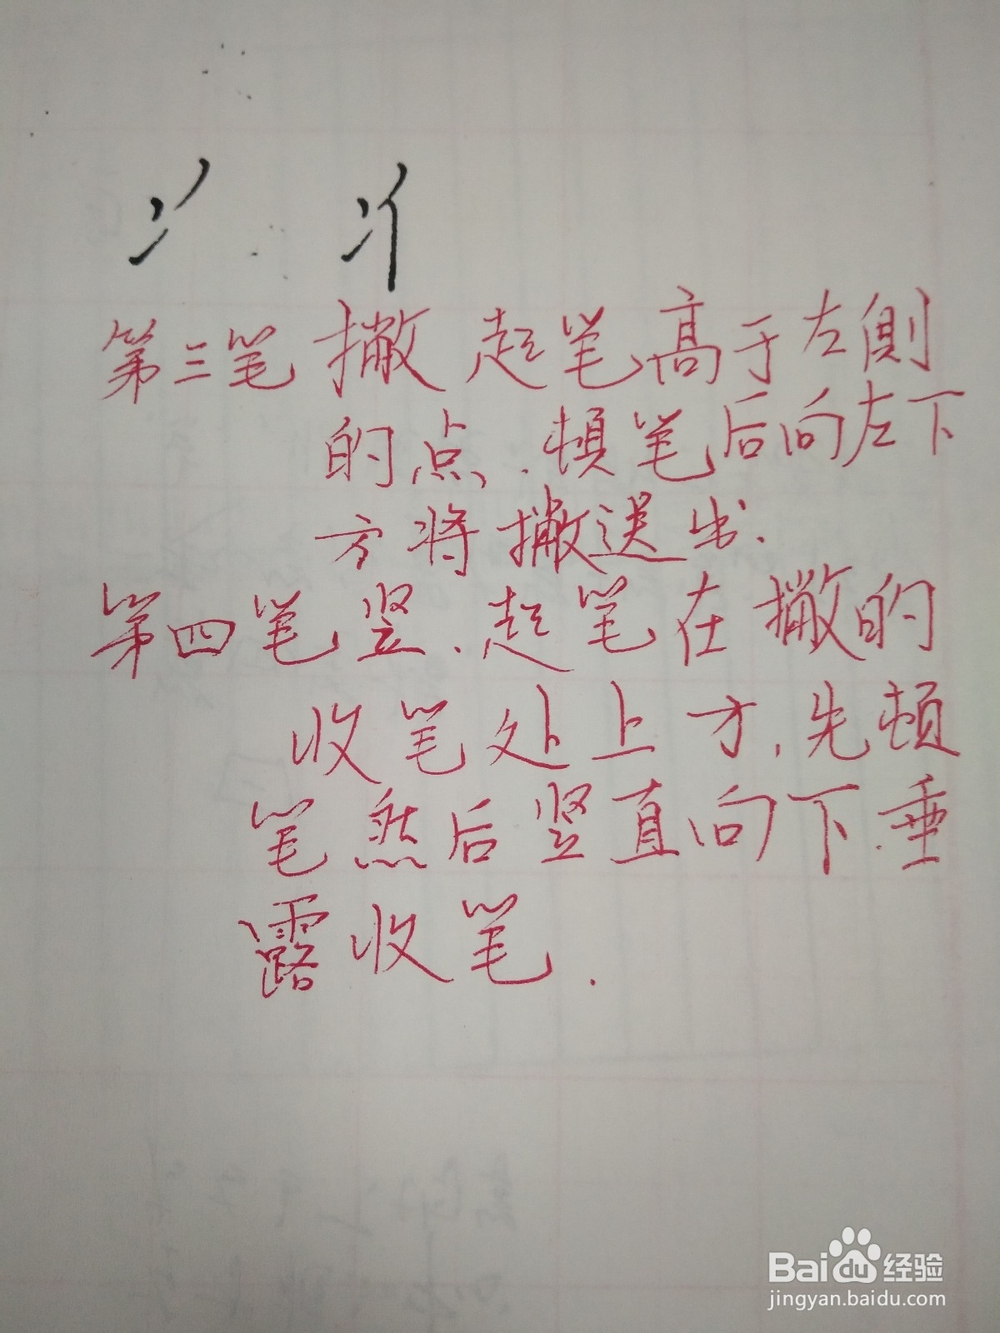 第三笔 撇 起笔高于左侧
的点.顿笔后向左下
方将撇送出.
第四笔竖.起笔在撇的
收笔处上方,先顿
笔然后竖直向下.垂
露收笔.
Baidu经验
jingyan.baidu.com